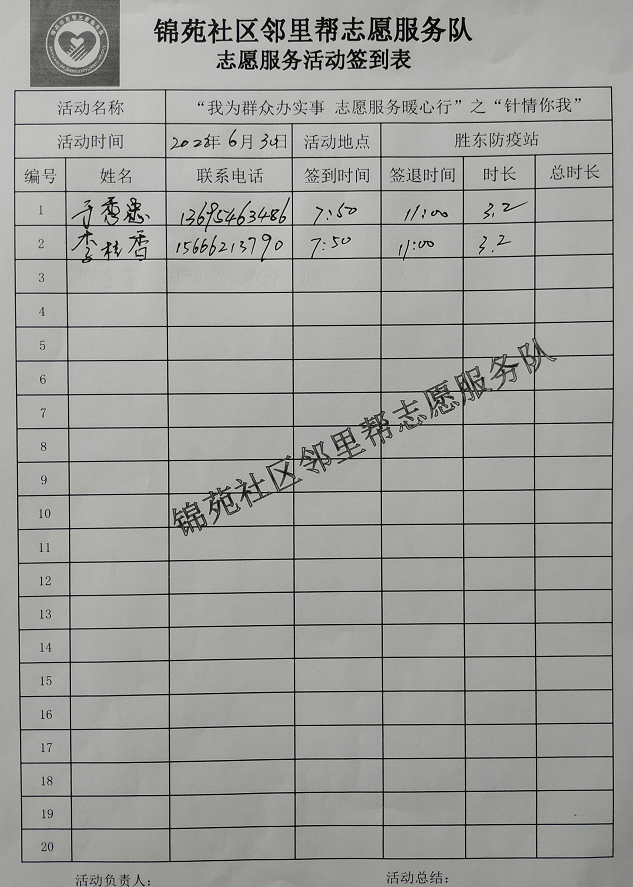 锦苑社区邻里帮志愿服务队
志愿服务活动签到表
活动名称 “我为群众办实事 志愿服务暖心行”之“针情你我”
活动时间 年6月30日 活动地点 胜东防疫站
编号 姓名 联系电话 签到时间 签退时间 时长 总时长
1 于秀 13695463486 7:50 11:00 3.2
2 李桂香 15666213790 7:50 11:00 3.2
3
4
5
6
7
8
9
10
11
12
13
14
15
16
17
18
19
20
锦苑社区邻里帮志愿服务队
活动负责人: 活动总结: